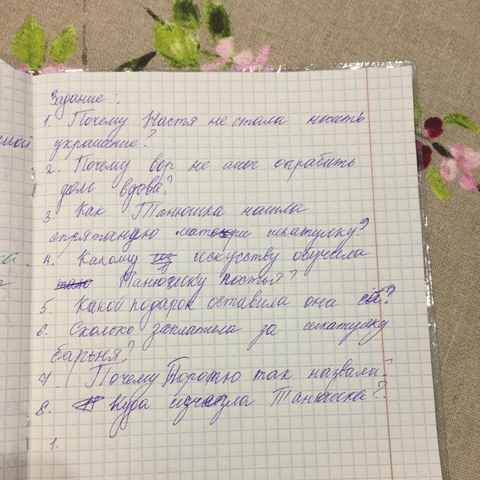 Задание:
1. Почему Настя не стала носить
украшение?
2. Почему вор не смог ограбить
дом вдова?
3. Как Танюшка нашла
спрятаную матери шкатулку?
4. Какому искусству обучила
Танюшку постоя?
5. Какой подарок оставила она ей?
6. Сколько заплатила за шкатулку
барыня?
7. Почему Поротю так назвали?
8. Куда исчезла Танюшка?
1.